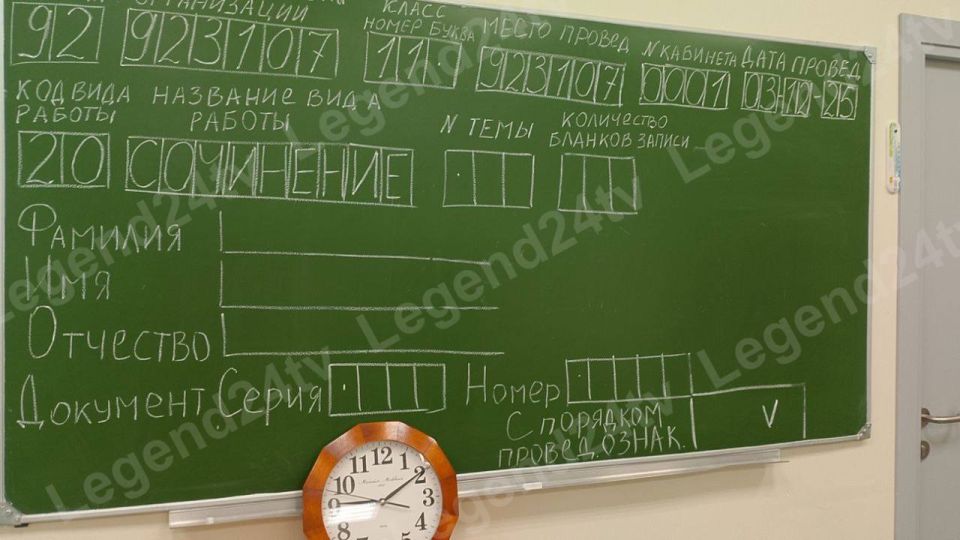 ОРГАНИЗАЦИИ КЛАСС
НОМЕР БУКВА МЕСТО ПРОВЕД N КАБИНЕТА ДАТА ПРОВЕД
92 923107 11 923107 0001 03-12-25
КОД ВИДА НАЗВАНИЕ ВИДА N ТЕМЫ КОЛИЧЕСТВО
РАБОТЫ РАБОТЫ БЛАНКОВ ЗАПИСИ
20 СОЧИНЕНИЕ
ФАМИЛИЯ
ИМЯ
ОТЧЕСТВО
ДОКУМЕНТ СЕРИЯ НОМЕР
С ПОРЯДКОМ V
ПРОВЕД. ОЗНАК.
12 1 2 3 4 8 9 10 11
Legend24tv
Legend24tv
Legend24tv
Legend24tv
Legend24tv
Legend24tv